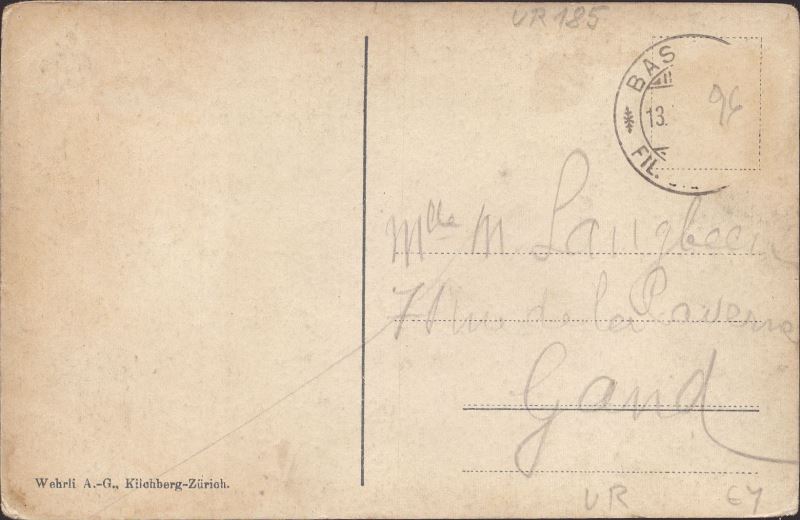 UR 185
BAS
13.
FIL.
96
Mlle M. Langbeen
71 rue de la
Gand
Wehrli A.-G., Kilchberg-Zürich.
UR 64